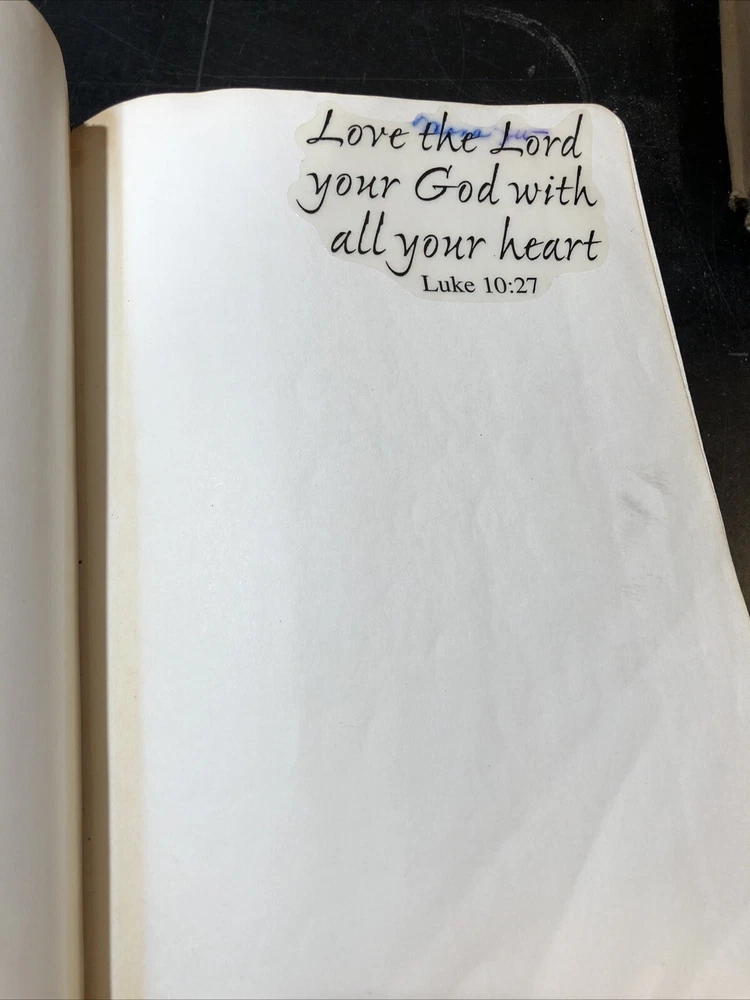 Love the Lord
your God with
all your heart
Luke 10:27